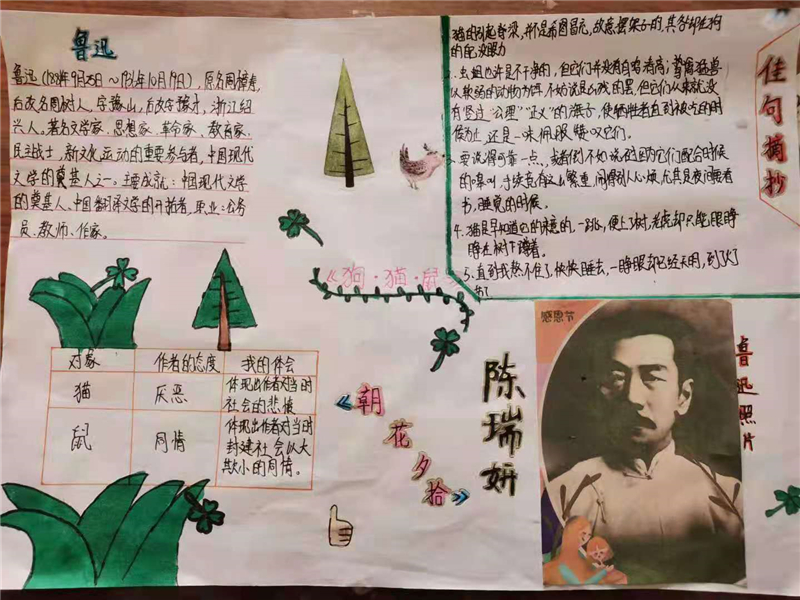 鲁迅
鲁迅(1881年9月25日～1936年10月19日),原名周樟寿,
后改名周树人,字豫山,后改字豫才,浙江绍
兴人。著名文学家、思想家、革命家、教育家、
民主战士,新文化运动的重要参与者,中国现代
文学的奠基人之一。主要成就:中国现代文学
的奠基人、中国翻译文学的开拓者,职业:公务
员、教师、作家。
对象 作者的态度 我的体会
猫 厌恶 体现出作者对当时
社会的悲愤
鼠 同情 体现出作者对当时
封建社会以大
欺小的同情。
《狗·猫·鼠》
《朝花夕拾》
陈瑞妍
佳句摘抄
的
2、虫蛆也许是不干净的,但它们并没有自鸣清高;鸷禽猛兽
以较弱的动物为饵,不妨说是凶残的罢,但它们从来就没
有竖过“公理”“正义”的旗子,使牺牲者直到被吃的时
候为止,还是一味佩服赞叹它们。
3、要说得可靠一点,或者倒不如说
的嗥叫,手续竟有这么繁重,闹得别人心烦,尤其是夜间要看
书,睡觉的时候。
4、猫是早知道它的来意的,一跳,便上了树,老虎却只能眼睁
睁在树下蹲着。
5、直到我熬不住了,快快睡去,一睁眼却已经天明,到了灯
节了
感恩节
鲁迅照片